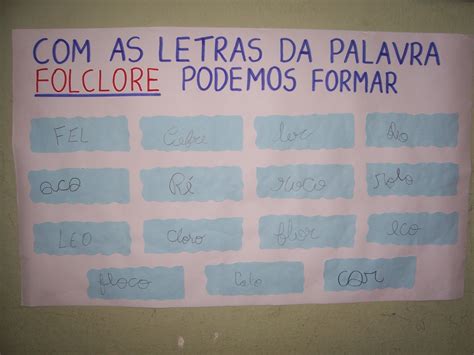 COM AS LETRAS DA PALAVRA
FOLCLORE PODEMOS FORMAR
FEL Cofre ler
oco Ré
LEO Cloro flor eco
floco Colo cor